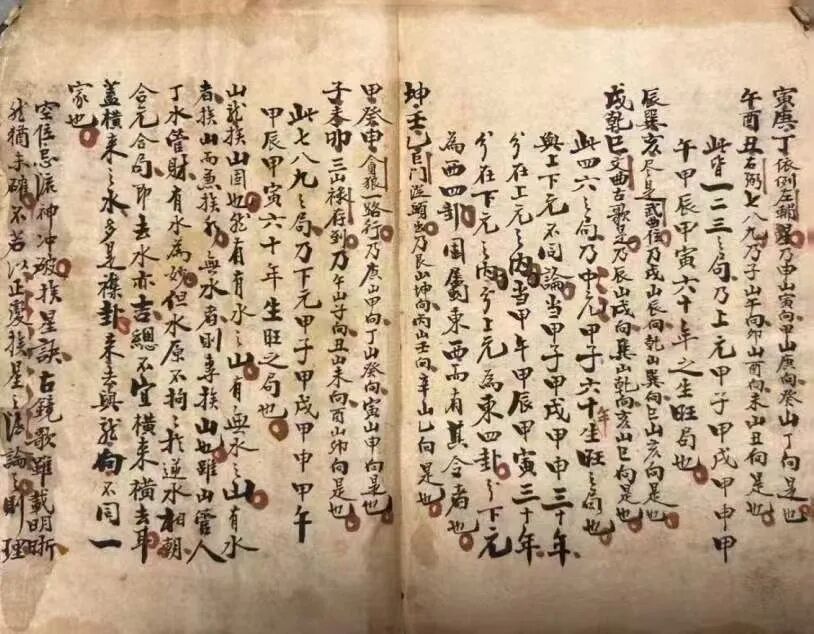 寅庚丁依例左輔星乃申山寅向甲山庚向癸山丁向是也
午酉丑右弼七八九乃子山午向卯山酉向未山丑向是也
此皆一二三之局乃上元甲子甲戌甲申甲
午甲辰甲寅六十年之生旺局也
辰巽亥尽是武曲位乃戌山辰向乾山巽向巳山亥向是也
戌乾巳文曲古歌是乃辰山戌向巽山乾向亥山巳向是也
此四六之局乃中元甲子六十年生旺之局也
與上下元不同論當甲子甲戌甲申三十年
分在上元之内當甲午甲辰甲寅三十年
分在下元之内分上元為東四卦分下元
為西四卦固屬東西而有其合者也
坤壬乙巨門從頭出乃艮山坤向丙山壬向辛山乙向是也
甲癸申貪狼一路行乃庚山甲向丁山癸向寅山申向是也
子未卯三山祿存到乃午山子向丑山未向酉山卯向是也
此七八九之局乃下元甲子甲戌甲申甲午
甲辰甲寅六十年生旺之局也
山龍挨山固也然有有水之山有無水之山有水
者挨山而兼挨水無水者則專挨山也雖山管人
丁水管財有水為妙但水原不拘之於逆水相朝
合元合局即去水亦吉總不宜橫来橫去耳
蓋橫来之水多是襍卦来去與龍向不同一
家也
空位忌流神冲破挨星訣古鏡歌雖載明晰
然猶未確不若以正變挨星之法論之則理